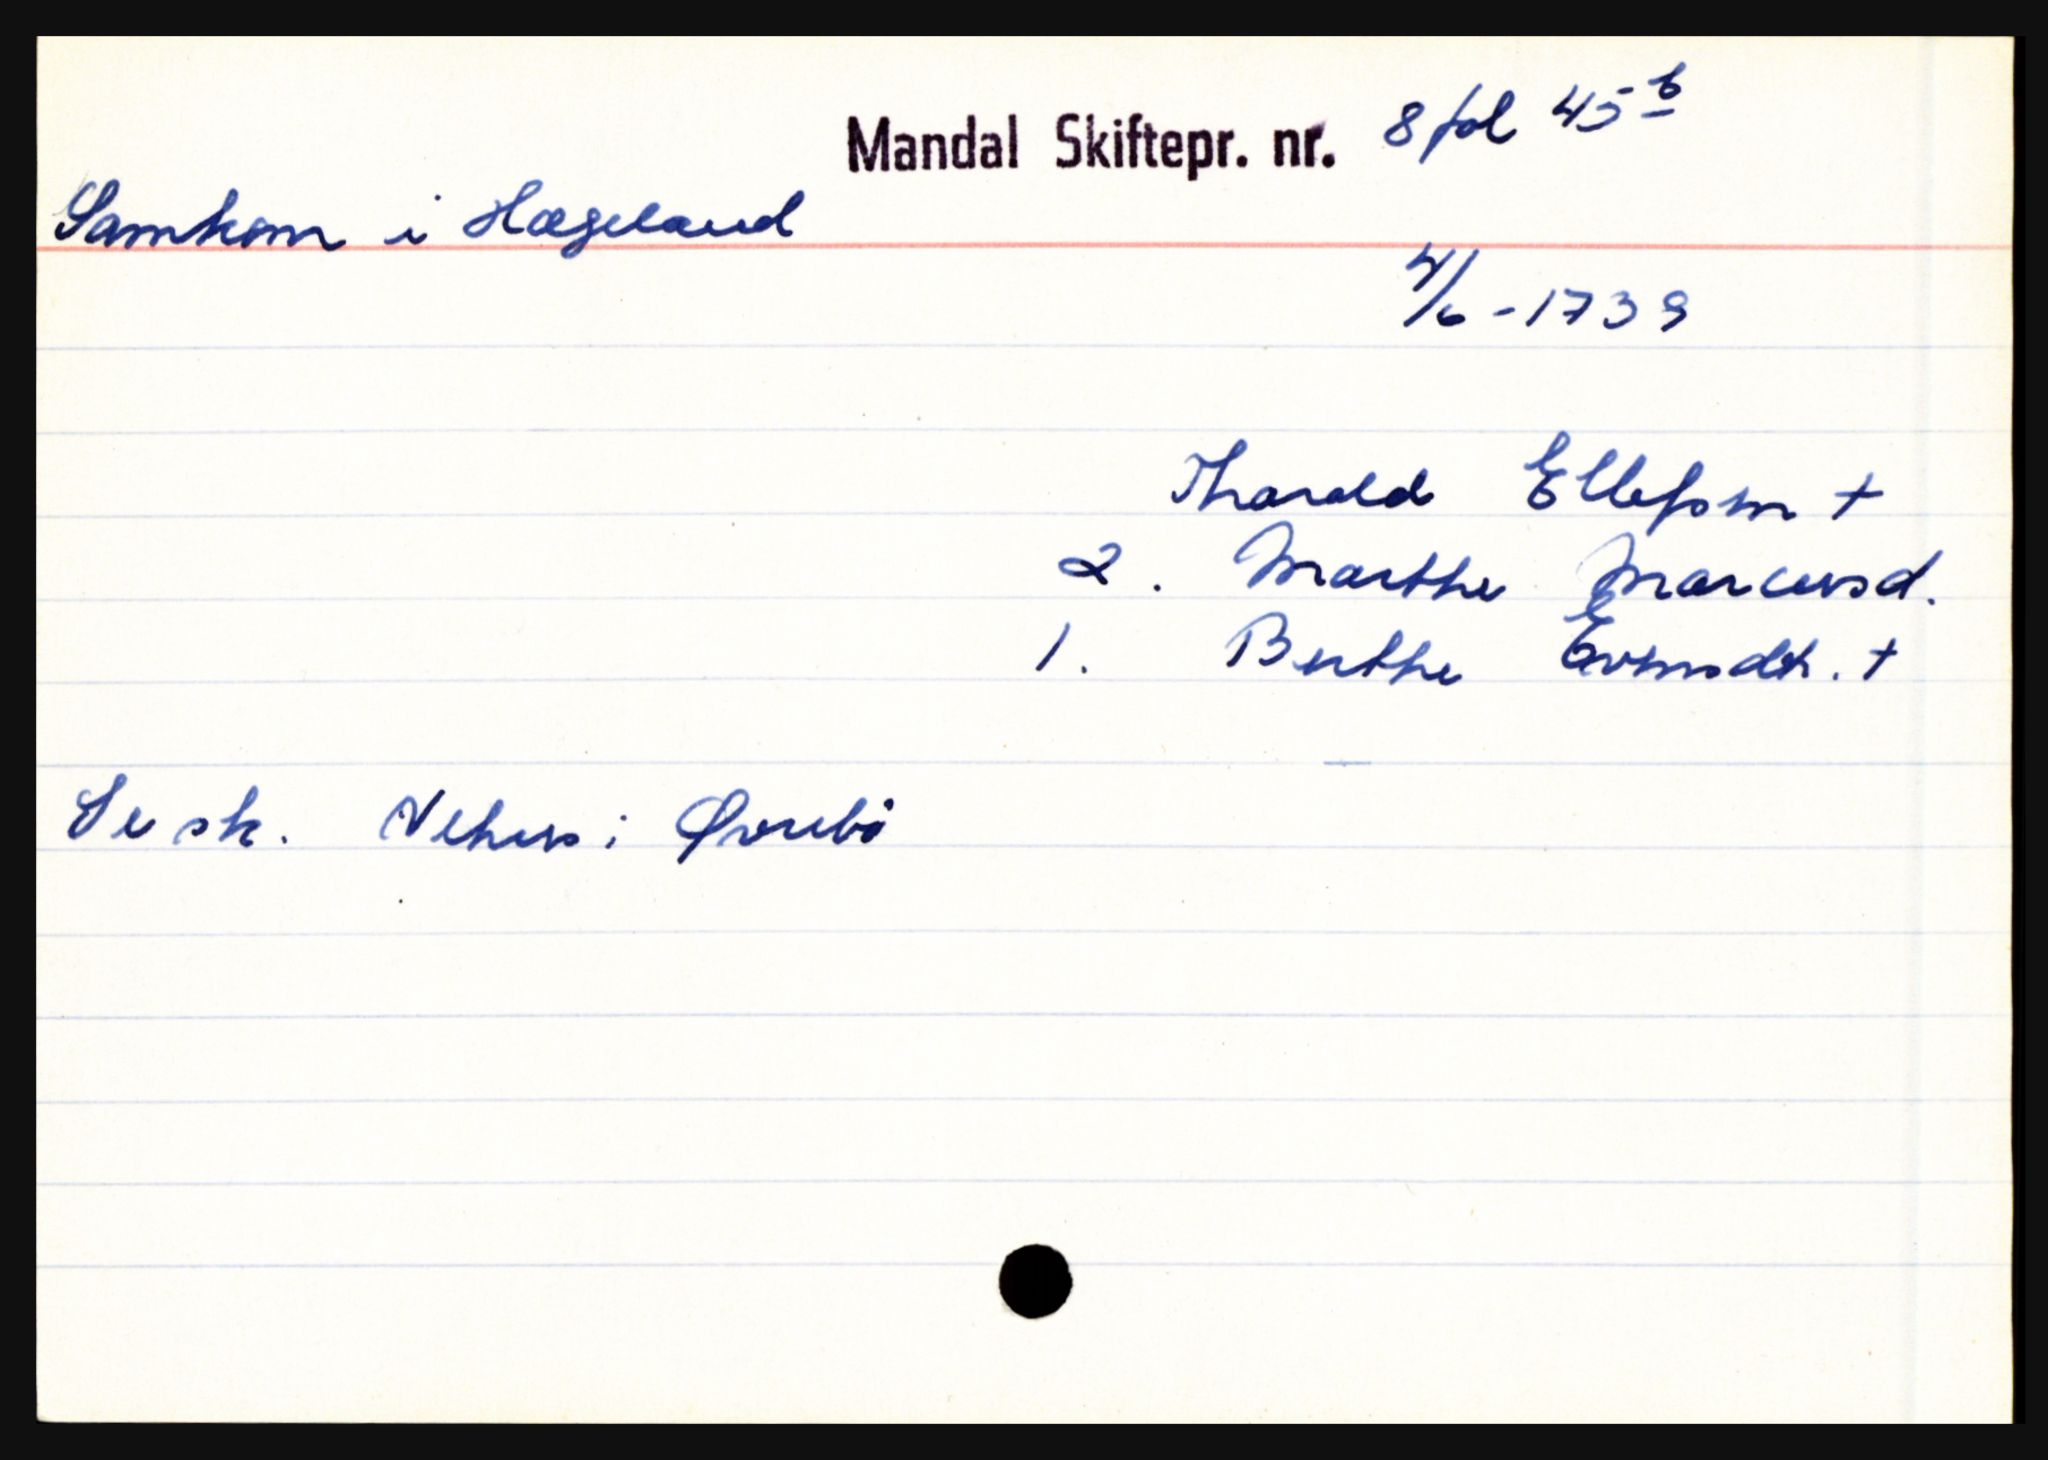 Mandal Skiftepr. nr. 8 fol 45 b
Samkom i Hægeland
4/6 - 1739
Tharald Ellefsen +
2. Marthe Marcusd.
1. Berthe Evensdtr. +
Se sk. Vehus i Øvrebö